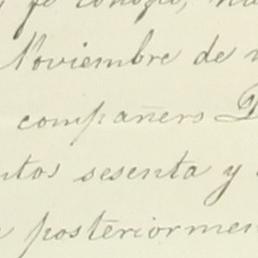 fe conozco, ha
Noviembre de
compañero D
ntos sesenta y
posteriormen